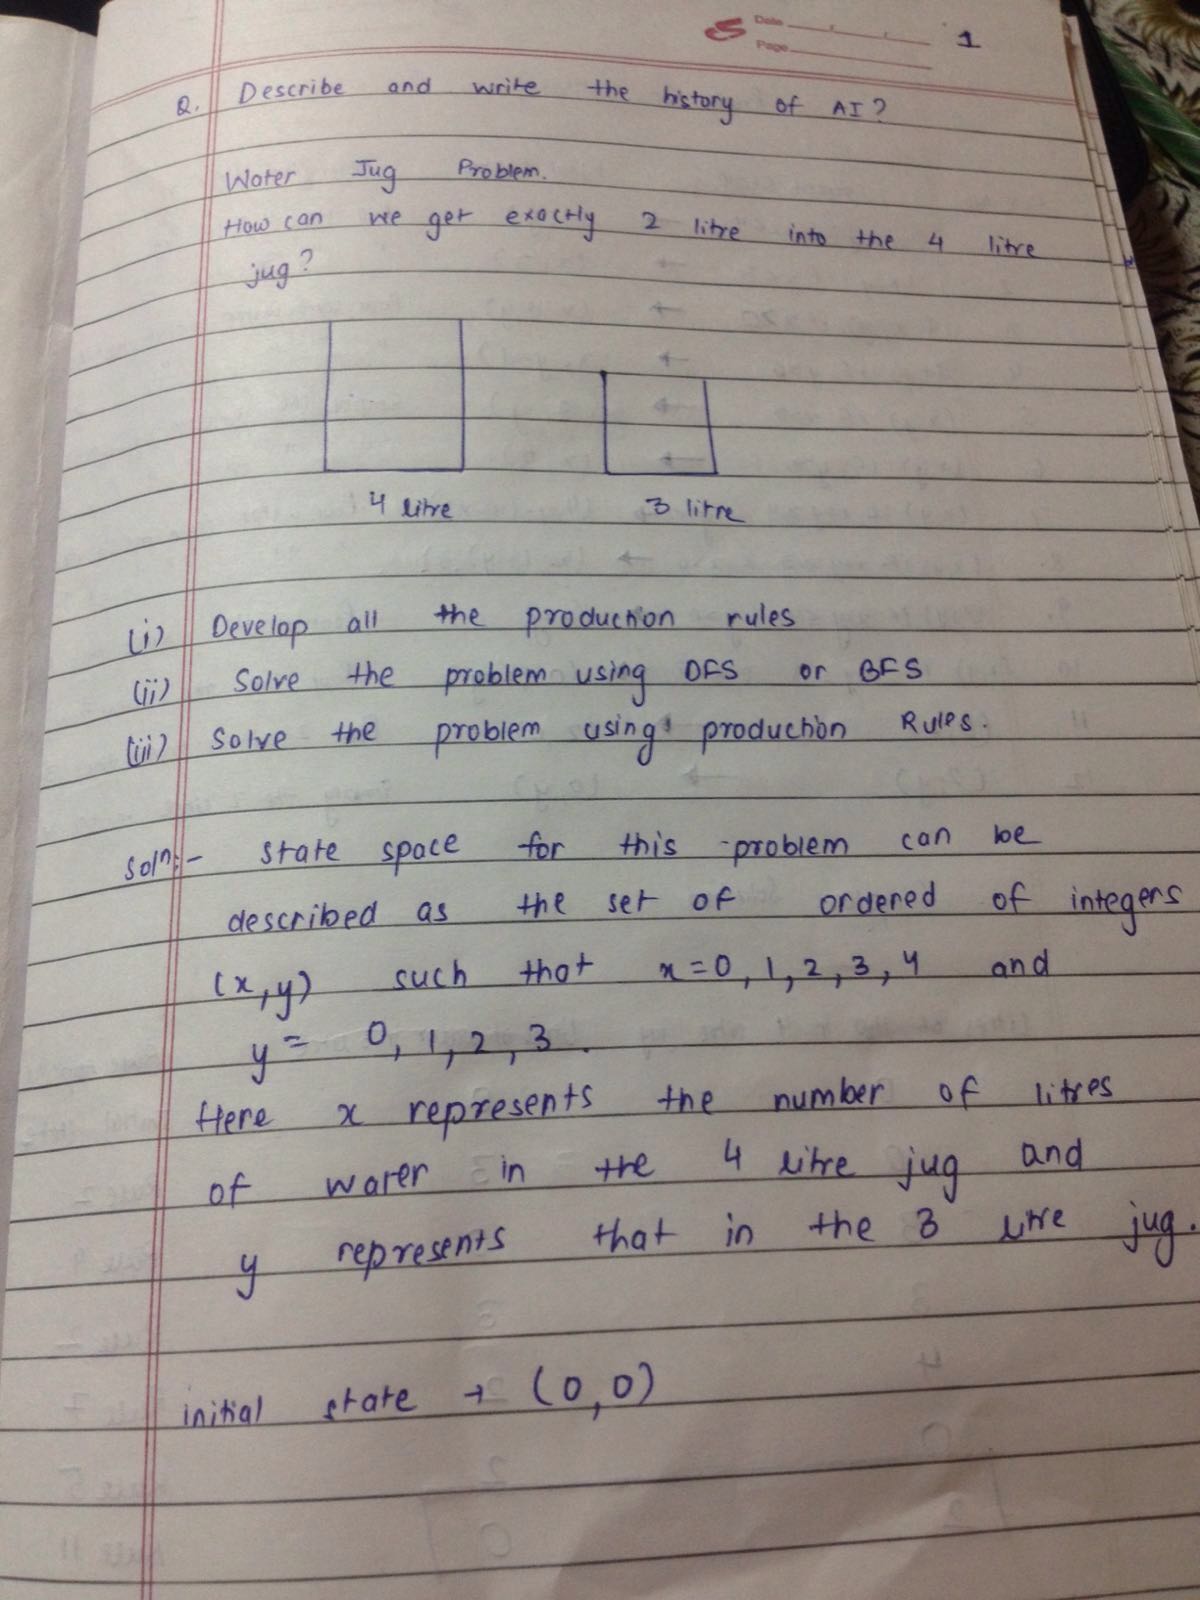 Date
1
Page
Q. Describe and write the history of AI?
Water Jug Problem.
How can we get exactly 2 litre into the 4 litre
jug?
4 litre 3 litre
(i) Develop all the production rules
(ii) Solve the problem using DFS or BFS
(iii) Solve the problem using production Rules.
Soln:- state space for this problem can be
described as the set of ordered of integers
(x,y) such that x=0,1,2,3,4 and
y= 0,1,2,3.
Here x represents the number of litres
of water in the 4 litre jug and
y represents that in the 3 litre jug.
initial state → (0,0)